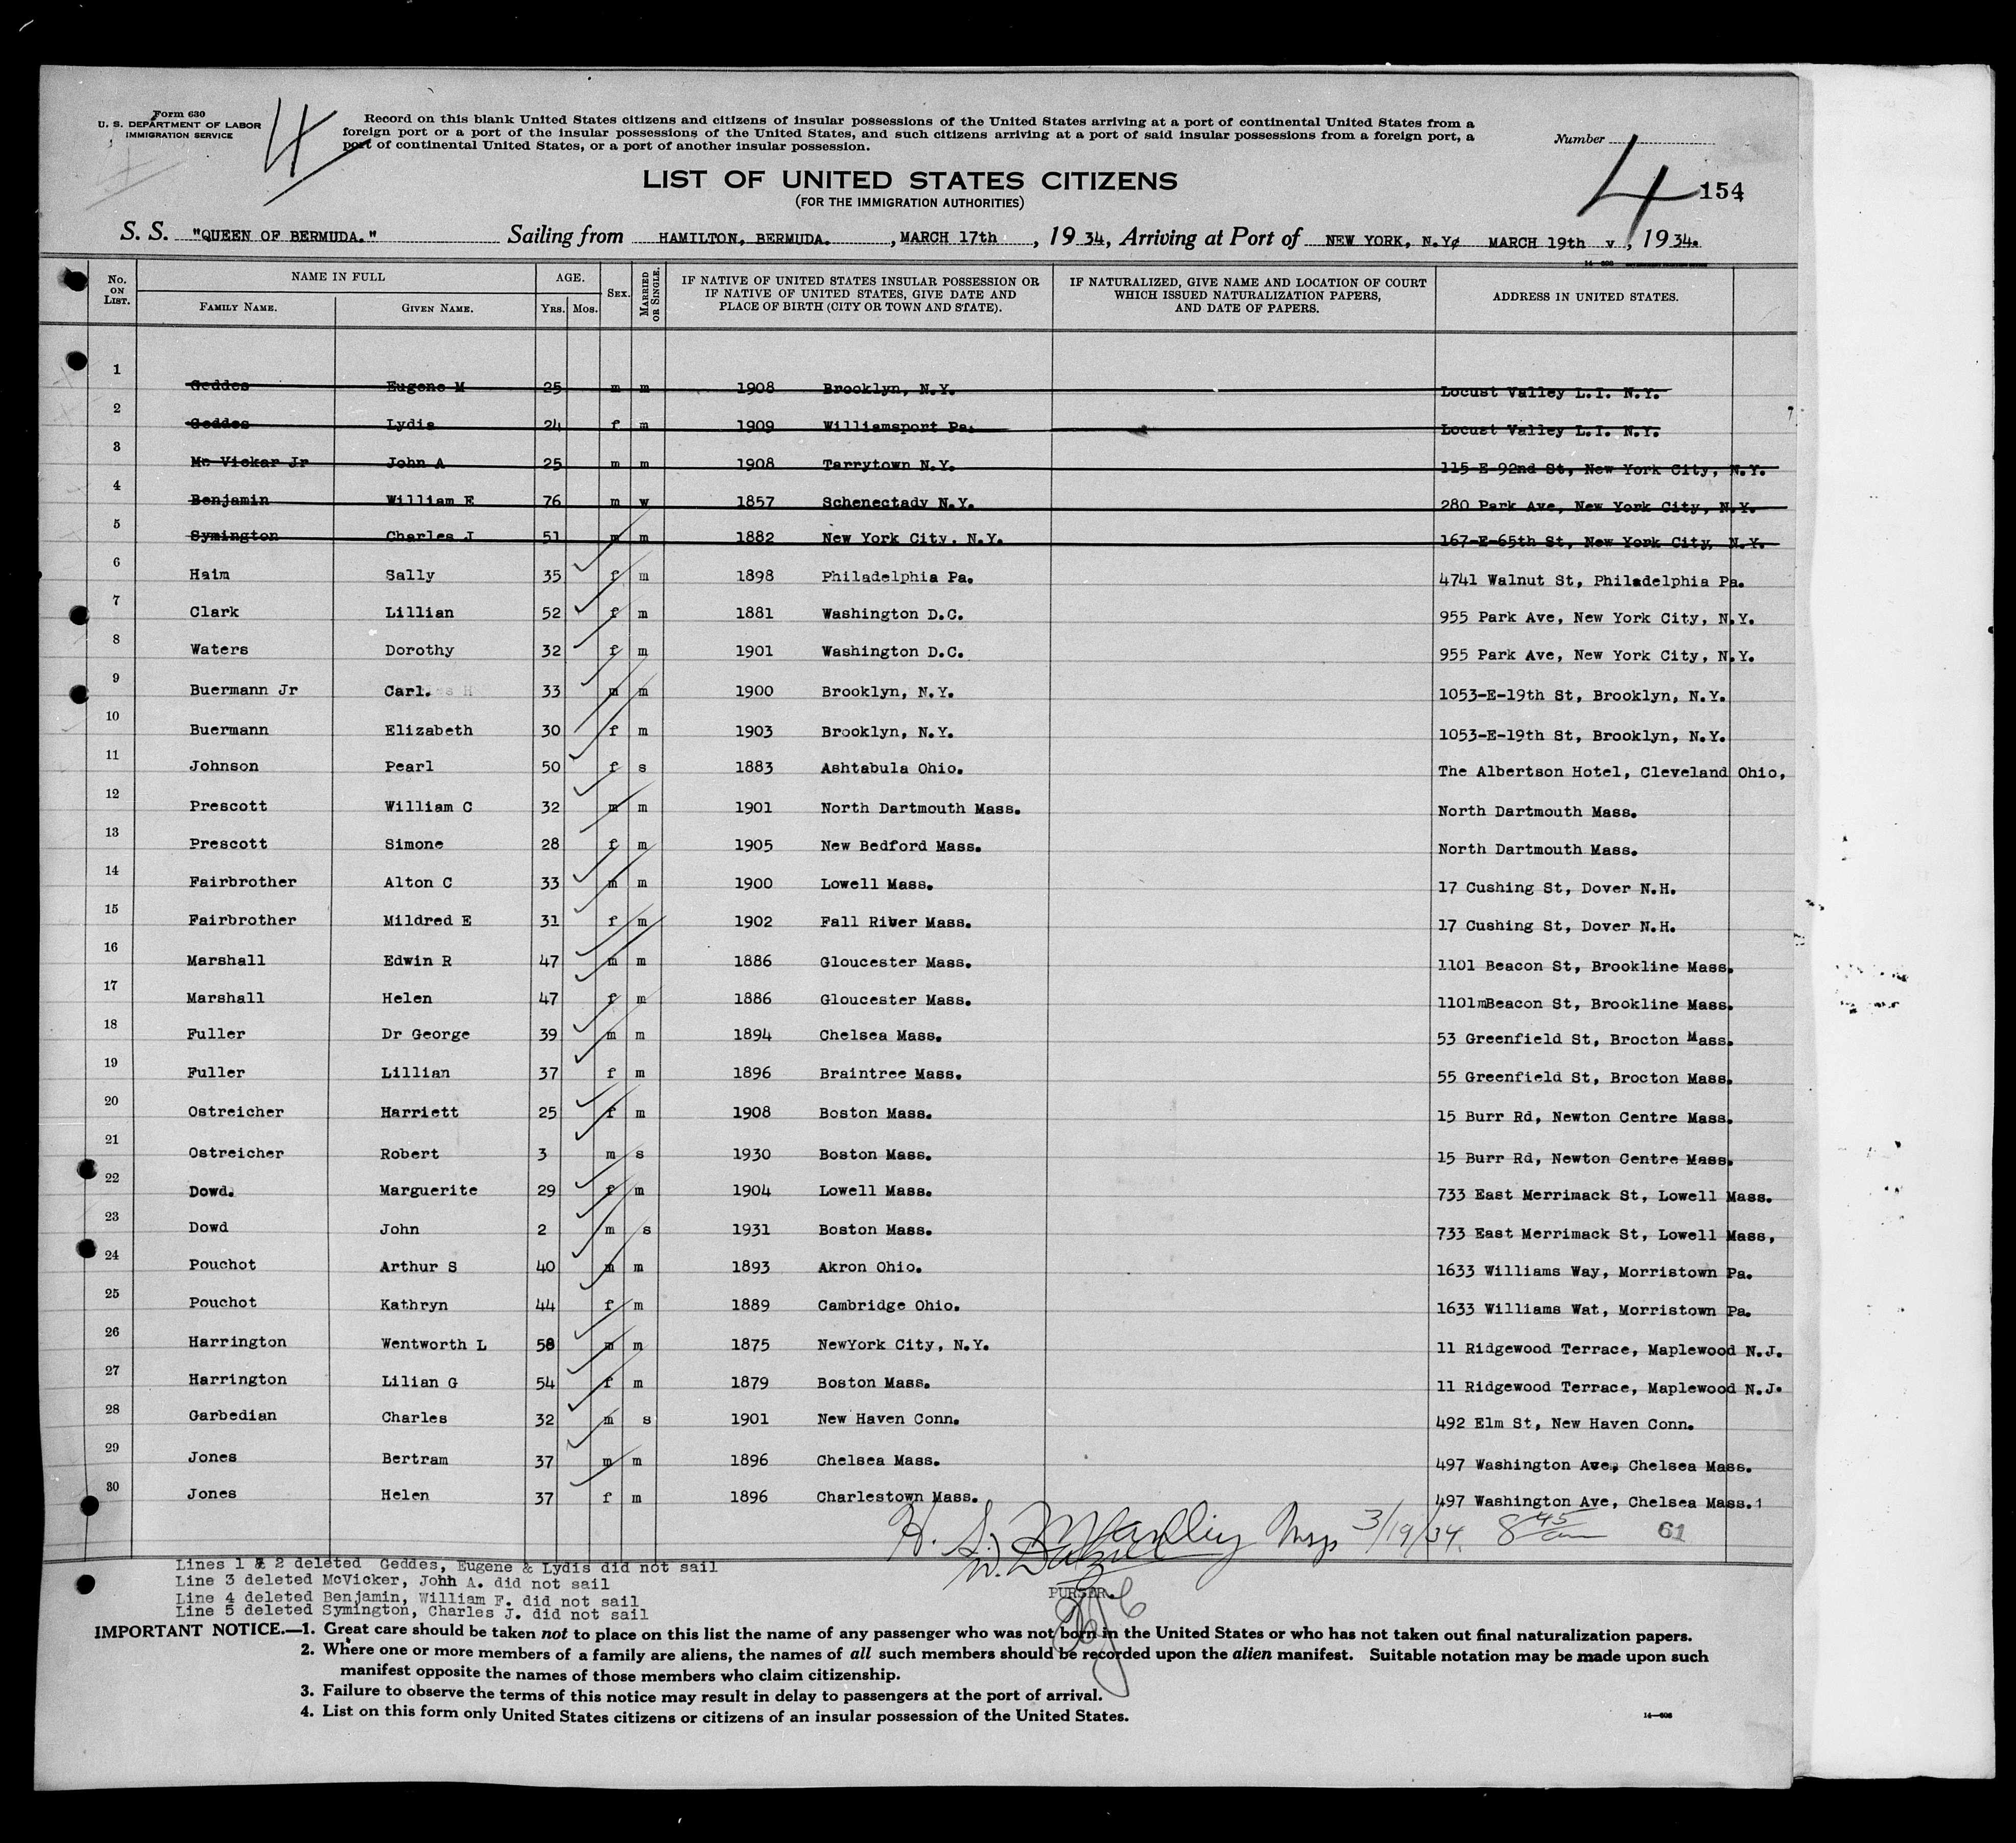 Form 630
U. S. DEPARTMENT OF LABOR
IMMIGRATION SERVICE
4
Record on this blank United States citizens and citizens of insular possessions of the United States arriving at a port of continental United States from a
foreign port or a port of the insular possessions of the United States, and such citizens arriving at a port of said insular possessions from a foreign port, a
port of continental United States, or a port of another insular possession.
Number
4
154
LIST OF UNITED STATES CITIZENS
(FOR THE IMMIGRATION AUTHORITIES)
S. S. "QUEEN OF BERMUDA." Sailing from HAMILTON, BERMUDA. , MARCH 17th , 19 34, Arriving at Port of NEW YORK, N.Y¢ MARCH 19th v , 19 34.
No. ON LIST. NAME IN FULL FAMILY NAME. GIVEN NAME. AGE. YRS. MOS. SEX. MARRIED OR SINGLE. IF NATIVE OF UNITED STATES INSULAR POSSESSION OR IF NATIVE OF UNITED STATES, GIVE DATE AND PLACE OF BIRTH (CITY OR TOWN AND STATE). IF NATURALIZED, GIVE NAME AND LOCATION OF COURT WHICH ISSUED NATURALIZATION PAPERS, AND DATE OF PAPERS. ADDRESS IN UNITED STATES.
1 Geddes Eugene M 25 m m 1908 Brooklyn, N.Y. Locust Valley L.I. N.Y.
2 Geddes Lydia 24 f m 1909 Williamsport Pa. Locust Valley L.I. N.Y.
3 Mc Vickar Jr John A 25 m m 1908 Tarrytown N.Y. 115 E 92nd St, New York City, N.Y.
4 Benjamin William E 76 m w 1857 Schenectady N.Y. 280 Park Ave, New York City, N.Y.
5 Symington Charles J 51 m m 1882 New York City, N.Y. 167-E-65th St, New York City, N.Y.
6 Haim Sally 35 f m 1898 Philadelphia Pa. 4741 Walnut St, Philadelphia Pa.
7 Clark Lillian 52 f m 1881 Washington D.C. 955 Park Ave, New York City, N.Y.
8 Waters Dorothy 32 f m 1901 Washington D.C. 955 Park Ave, New York City, N.Y.
9 Buermann Jr Carl. 33 m m 1900 Brooklyn, N.Y. 1053-E-19th St, Brooklyn, N.Y.
10 Buermann Elizabeth 30 f m 1903 Brooklyn, N.Y. 1053-E-19th St, Brooklyn, N.Y.
11 Johnson Pearl 50 f s 1883 Ashtabula Ohio. The Albertson Hotel, Cleveland Ohio,
12 Prescott William C 32 m m 1901 North Dartmouth Mass. North Dartmouth Mass.
13 Prescott Simone 28 f m 1905 New Bedford Mass. North Dartmouth Mass.
14 Fairbrother Alton C 33 m m 1900 Lowell Mass. 17 Cushing St, Dover N.H.
15 Fairbrother Mildred E 31 f m 1902 Fall River Mass. 17 Cushing St, Dover N.H.
16 Marshall Edwin R 47 m m 1886 Gloucester Mass. 1101 Beacon St, Brookline Mass.
17 Marshall Helen 47 f m 1886 Gloucester Mass. 1101mBeacon St, Brookline Mass.
18 Fuller Dr George 39 m m 1894 Chelsea Mass. 53 Greenfield St, Brocton Mass.
19 Fuller Lillian 37 f m 1896 Braintree Mass. 55 Greenfield St, Brocton Mass.
20 Ostreicher Harriett 25 f m 1908 Boston Mass. 15 Burr Rd, Newton Centre Mass.
21 Ostreicher Robert 3 m s 1930 Boston Mass. 15 Burr Rd, Newton Centre Mass.
22 Dowd. Marguerite 29 f m 1904 Lowell Mass. 733 East Merrimack St, Lowell Mass.
23 Dowd John 2 m s 1931 Boston Mass. 733 East Merrimack St, Lowell Mass,
24 Pouchot Arthur S 40 m m 1893 Akron Ohio. 1633 Williams Way, Morristown Pa.
25 Pouchot Kathryn 44 f m 1889 Cambridge Ohio. 1633 Williams Wat, Morristown Pa.
26 Harrington Wentworth L 58 m m 1875 NewYork City, N.Y. 11 Ridgewood Terrace, Maplewood N.J.
27 Harrington Lilian G 54 f m 1879 Boston Mass. 11 Ridgewood Terrace, Maplewood N.J.
28 Garbedian Charles 32 m s 1901 New Haven Conn. 492 Elm St, New Haven Conn.
29 Jones Bertram 37 m m 1896 Chelsea Mass. 497 Washington Ave, Chelsea Mass.
30 Jones Helen 37 f m 1896 Charlestown Mass. 497 Washington Ave, Chelsea Mass.
3/19/34. 8 45 am 61
PURSER.
Lines 1 & 2 deleted Geddes, Eugene & Lydis did not sail
Line 3 deleted McVicker, John A. did not sail
Line 4 deleted Benjamin, William F. did not sail
Line 5 deleted Symington, Charles J. did not sail
IMPORTANT NOTICE.—1. Great care should be taken not to place on this list the name of any passenger who was not born in the United States or who has not taken out final naturalization papers.
2. Where one or more members of a family are aliens, the names of all such members should be recorded upon the alien manifest. Suitable notation may be made upon such
manifest opposite the names of those members who claim citizenship.
3. Failure to observe the terms of this notice may result in delay to passengers at the port of arrival.
4. List on this form only United States citizens or citizens of an insular possession of the United States.
14—608